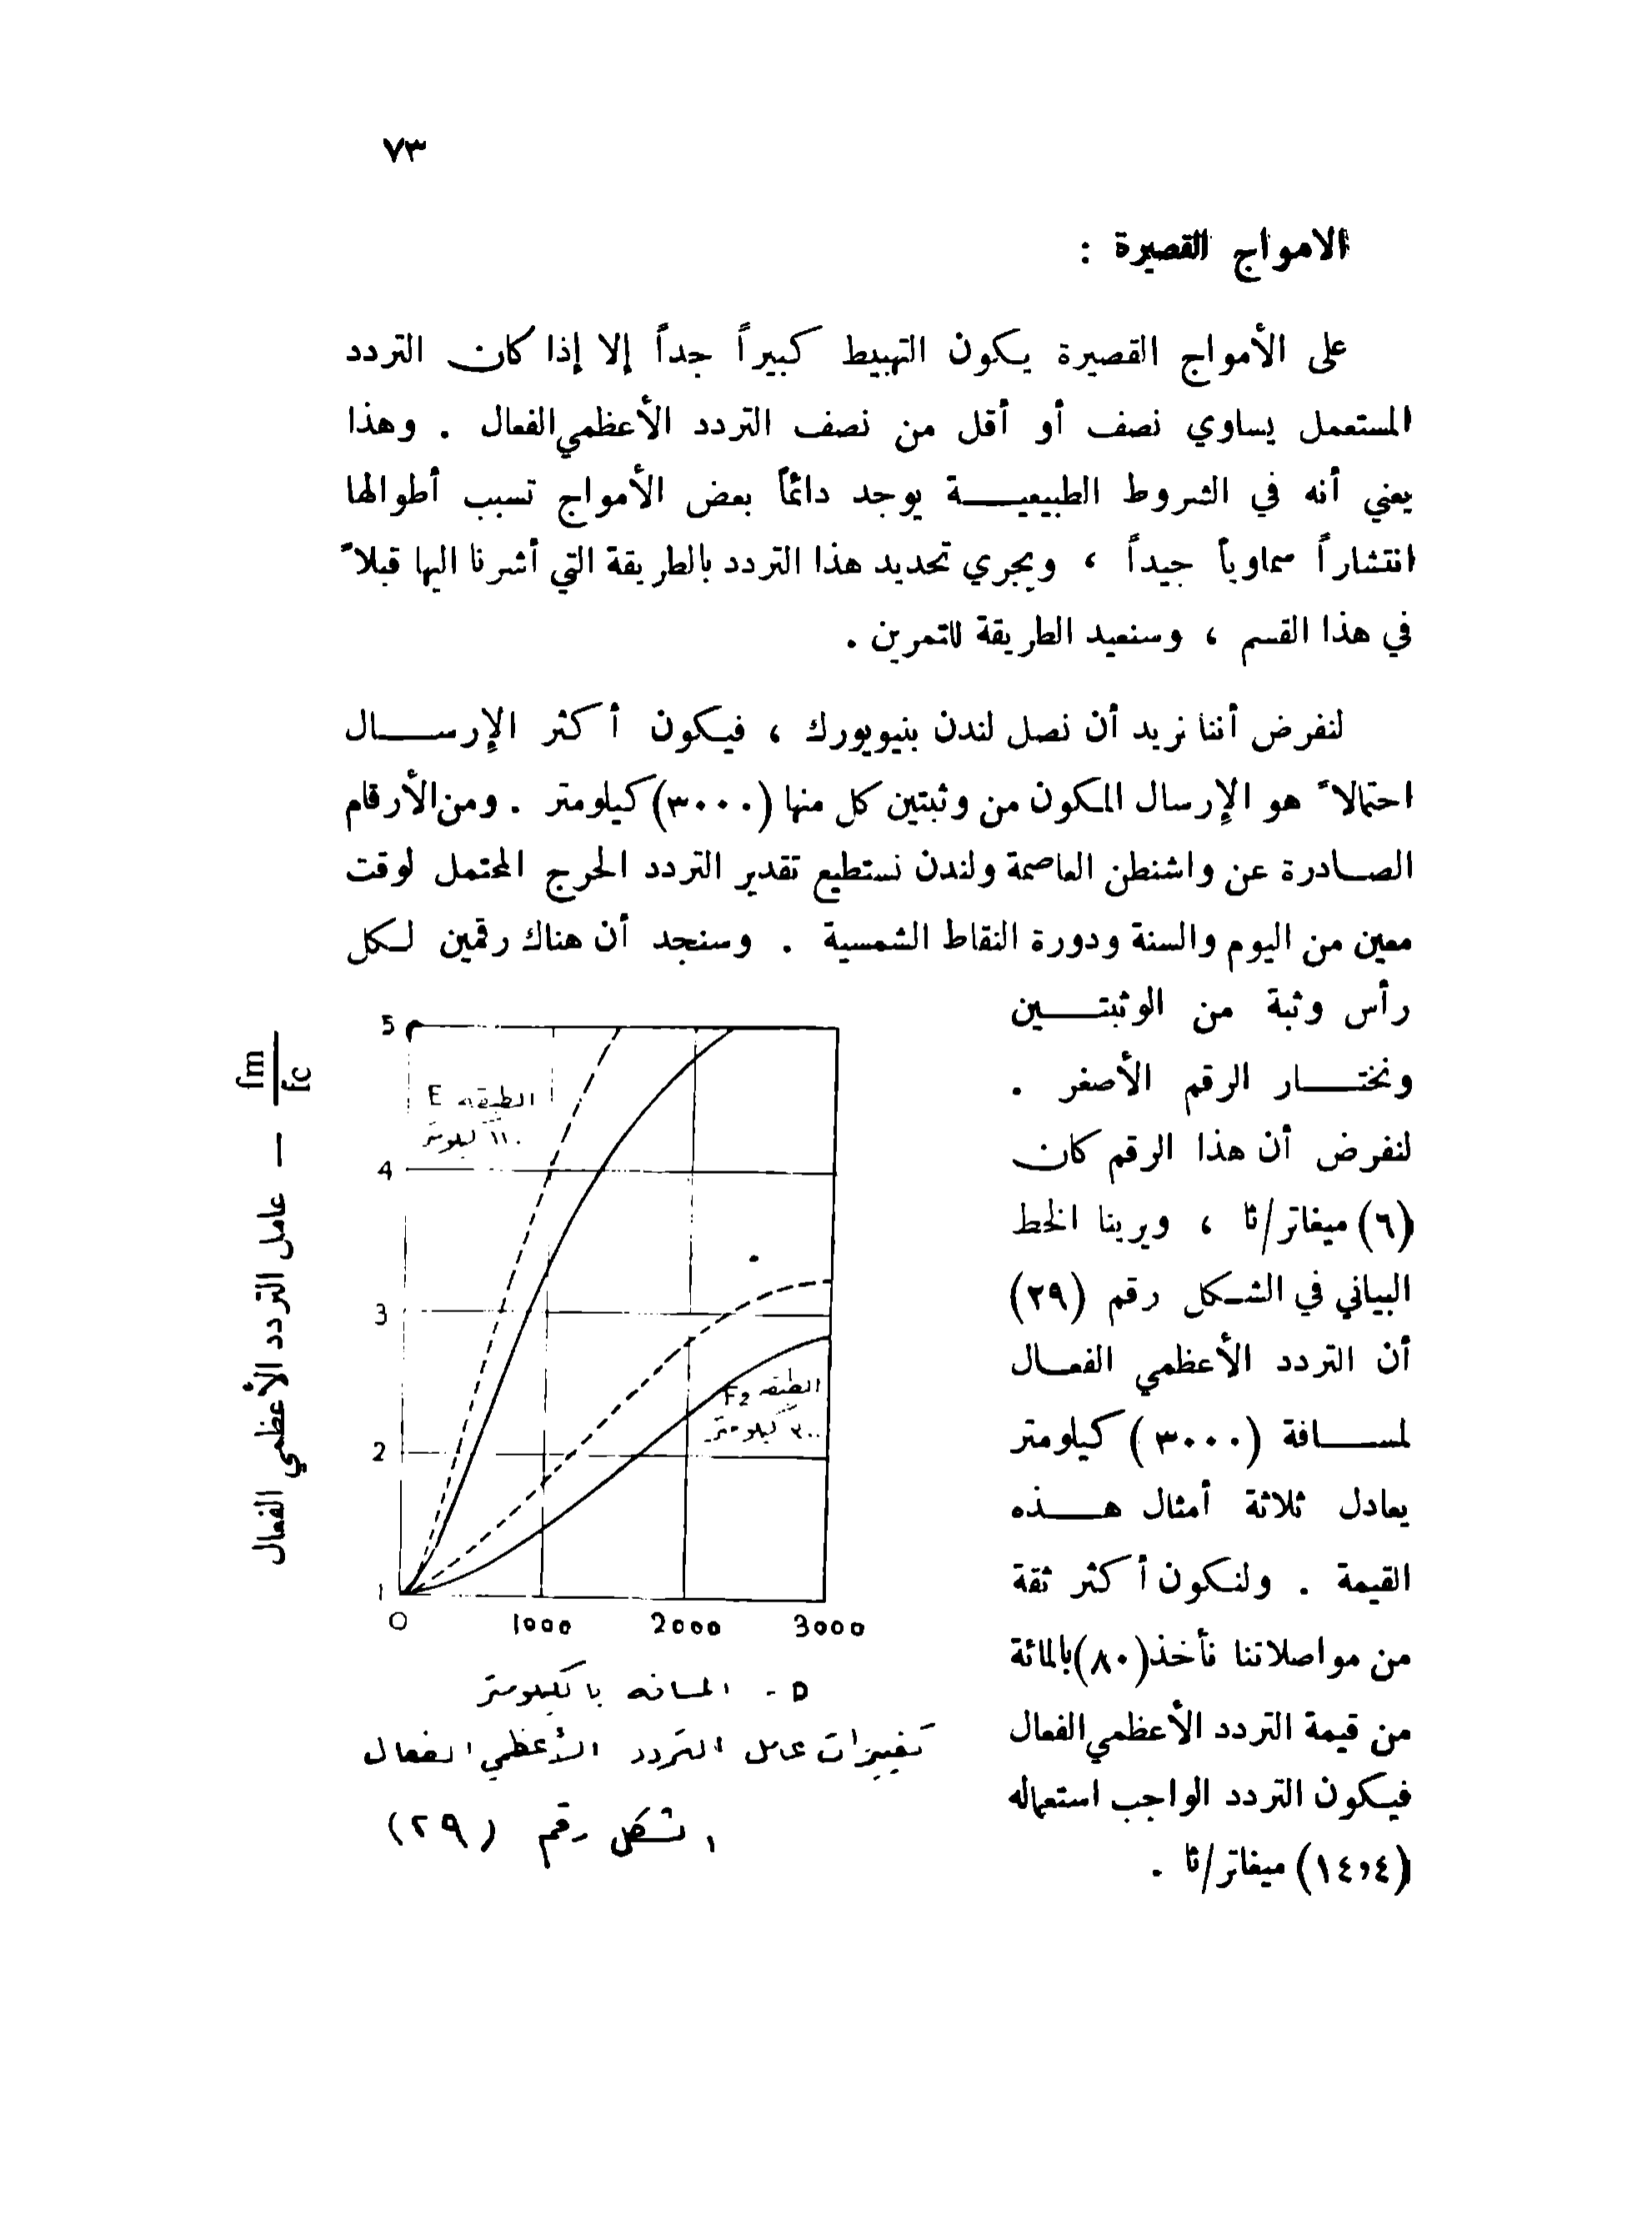 ٧٣
الامواج القصيرة :
على الأمواج القصيرة يكون التهبيط كبيراً جداً إلا إذا كان التردد
المستعمل يساوي نصف أو أقل من نصف التردد الأعظمي الفعال . وهذا
يعني أنه في الشروط الطبيعيـــة يوجد دائماً بعض الأمواج تسبب أطوالها
انتشاراً سماوياً جيداً ، ويجري تحديد هذا التردد بالطريقة التي أشرنا اليها قبلاً
في هذا القسم ، وسنعيد الطريقة للتمرين .
لنفرض أننا نريد أن نصل لندن بنيويورك ، فيكون أكثر الإرســـال
احتمالاً هو الإرسال المكون من وثبتين كل منها (٣٠٠٠) كيلومتر . ومن الأرقام
الصــادرة عن واشنطن العاصمة ولندن نستطيع تقدير التردد الحرج المحتمل لوقت
معين من اليوم والسنة ودورة النقاط الشمسية . وسنجد أن هناك رقمين لـكل
رأس وثبة من الوثبتـــين
ونختـــار الرقم الأصغر .
لنفرض أن هذا الرقم كان
(٦) ميغاتر/ثا ، ويرينا الخط
البياني في الشكل رقم (٢٩)
أن التردد الأعظمي الفعـال
لمســـافة (٣٠٠٠) كيلومتر
يعادل ثلاثة أمثال هـــذه
القيمة . ولنكون أكثر ثقة
من مواصلاتنا نأخذ (٨٠) بالمائة
من قيمة التردد الأعظمي الفعال
فيكون التردد الواجب استعماله
(١٤,٤) ميغاتر/ثا .
fm
fc
— عامل التردد الأعظمي الفعال
5
4
3
2
1
الطبقه E
١١٠ كيلومتر
الطبقه F2
٣٠٠ كيلومتر
0 1000 2000 3000
D - المسافه بالكيلومتر
تغييرات عامل التردد الأعظمي الفعال
الشكل رقم (٢٩)